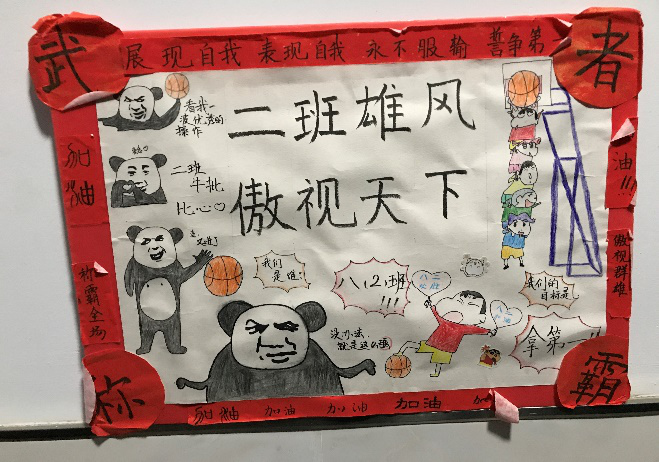 武
展现自我 表现自我 永不服输 誓争第一
者
看我一
波优秀的
操作
二班雄风
傲视天下
二班
牛批
比心♡
加油
油!!!
傲视群雄
称霸全场
我们
是谁?
八(2)班
!!!
我们的
目标是
拿第一!!
没办法,
就是这么强
称
加油 加油 加油 加油
霸